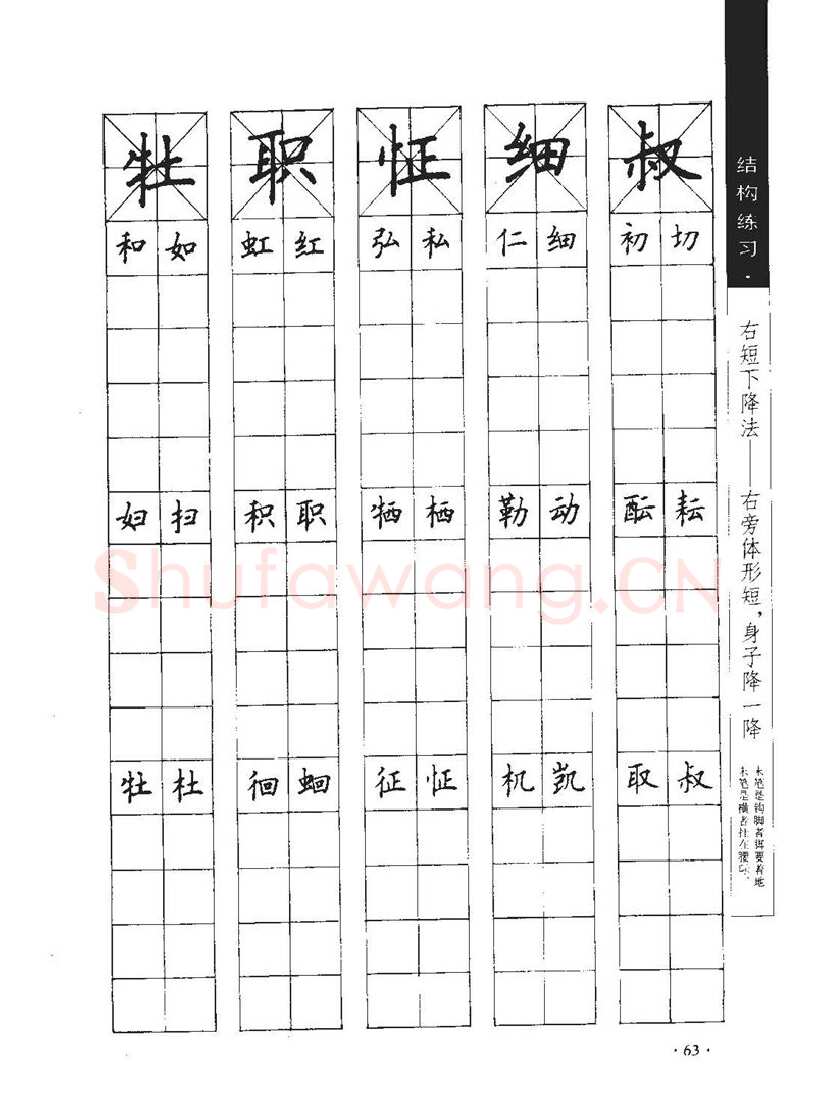 牡 职 怔 细 叔
和 如 虹 红 弘 私 仁 细 初 切
妇 扫 积 职 牺 栖 勒 动 酝 耘
牡 杜 徊 蛔 征 怔 机 凯 取 叔
结构练习·
右短下降法——右旁体形短，身子降一降
末笔是钩脚者
末笔是横者
Shufawang.CN
·63·